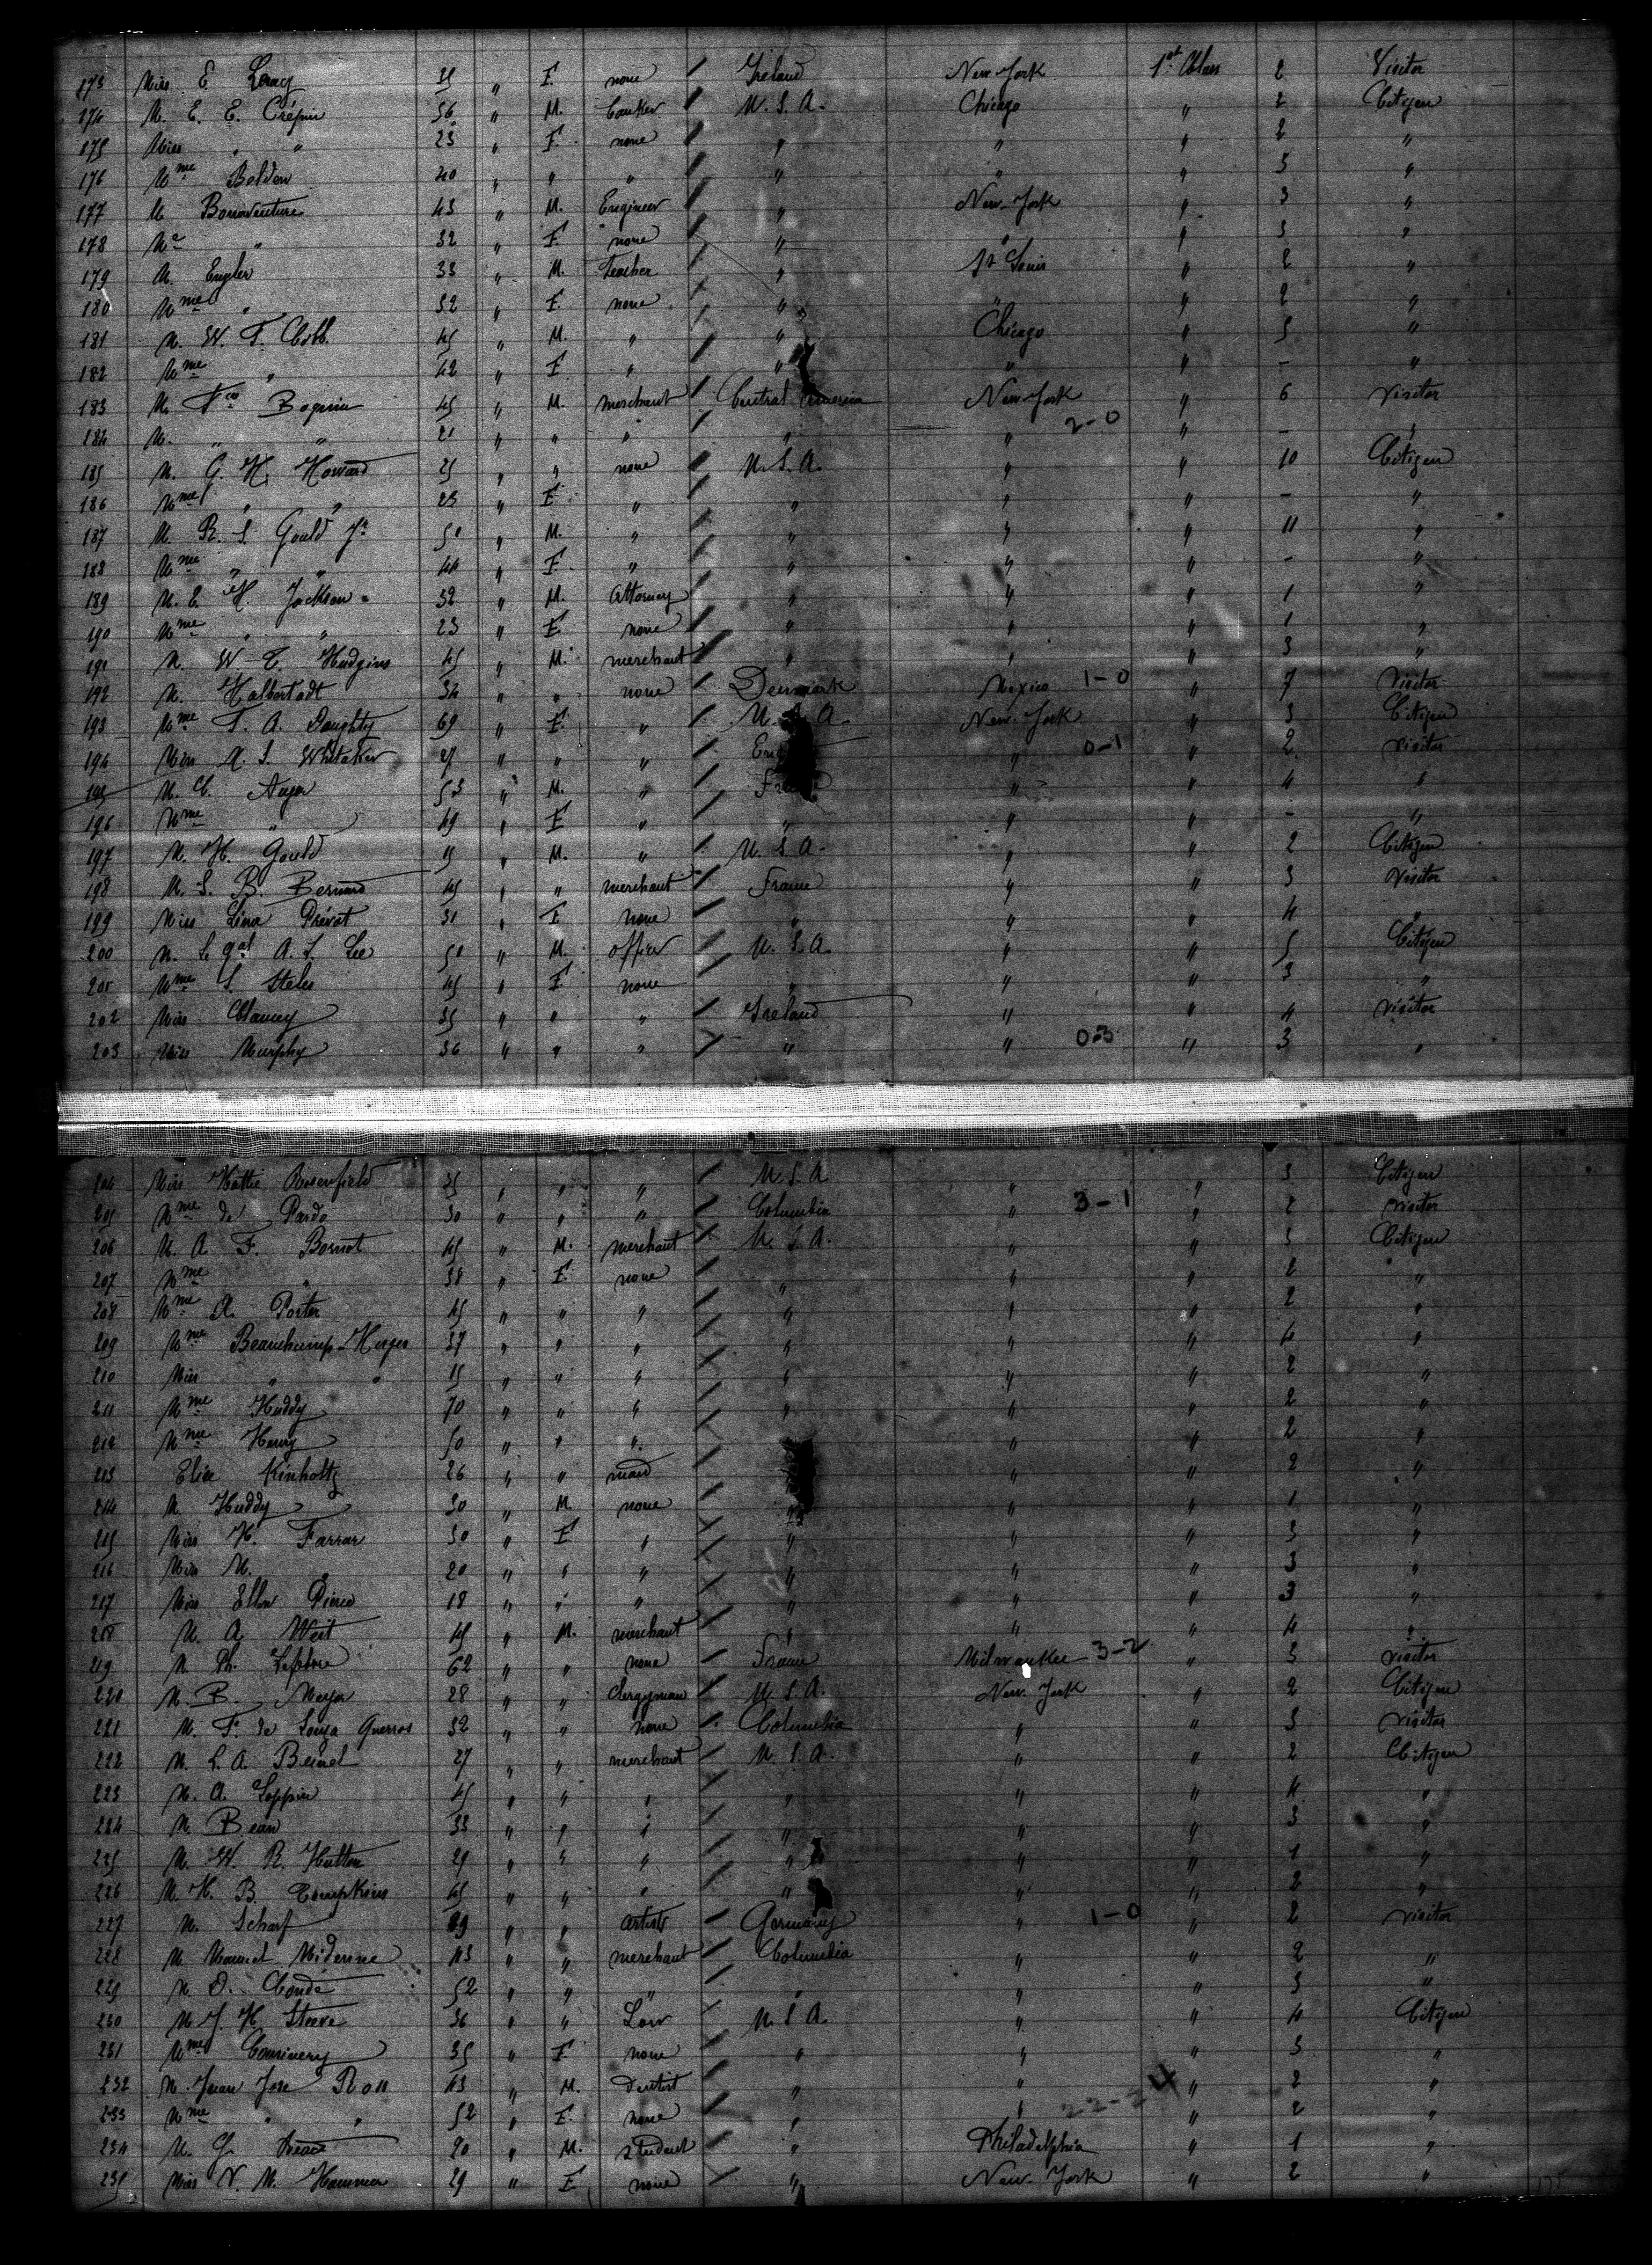 173 Miss E. Leacy 35 " F. none / Ireland New-York 1st Class 2 Visitor
174 M. E. E. Crépin 56 " M. banker / U.S.A. Chicago " 2 Citizen
175 Miss " " 23 " F. none / " " " 2 "
176 Mme Belden 40 " " " / " " " 5 "
177 M. Bonaventure 43 " M. Engineer / " New-York " 3 "
178 Me " 32 " F. none / " " " 3 "
179 M. Engler 33 " M. Teacher / " St Louis " 2 "
180 Mme " 32 " F. none / " " " 2 "
181 M. W. T. Cobb 45 " M. " / " Chicago " 5 "
182 Mme " 42 " F. " / " " " - "
183 M. Fco 45 " M. merchant / Central America New-York " 6 Visitor
184 M. " " 21 " " " / " " 2-0 " - "
185 M. G. H. Howard 25 " " none / U.S.A. " " 10 Citizen
186 Mme " " 23 " F. " / " " " - "
187 M. R. S. Gould Jr 50 " M. " / " " " 11 "
188 Mme " " 44 " F. " / " " " - "
189 M. E. H. Jackson 32 " M. Attorney / " " " 1 "
190 Mme " " 23 " F. none / " " " 1 "
191 M. W. E. Hudgins 45 " M. merchant / " " " 3 "
192 M. Halbertadt 34 " " none / Denmark Mexico 1-0 " 7 Visitor
193 Mme T. A. Doughty 69 " F. " / U.S.A. New-York " 3 Citizen
194 Miss A. S. Whitaker " " " / " 0-1 " 2 visitor
195 M. C. Auger 53 " M. " / " " 4 "
196 Mme " 49 " F. " / " " " - "
197 M. H. Gould 15 " M. " / U.S.A. " " 2 Citizen
198 M. S. B. Bernard 45 " " merchant / France " " 3 Visitor
199 Miss Lina Prévot 31 " F. none / " " " 4 "
200 M. Le gal A. L. Lee 50 " M. officer / U.S.A. " " 5 Citizen
201 Mme S. Steles 45 " F. none / " " " 3 "
202 Miss Clancey 35 " " " / Ireland " " 4 visitor
203 Miss Murphy 36 " " " / " " 0-3 " 3 "
204 Miss Hattie Rosenfield 35 " " " / U.S.A. " " 3 Citizen
205 Mme de Pardo 30 " " " / Columbia " 3-1 " 2 visitor
206 M. A. F. Bornot 45 " M. merchant / U.S.A. " " 5 Citizen
207 Mme " 38 " F. none / " " " 2 "
208 Mme A. Porter 45 " " " / " " " 2 "
209 Mme Beauchamp-Herger 37 " " " / " " " 4 "
210 Miss " " 15 " " " / " " " 2 "
211 Mme Huddy 70 " " " / " " " 2 "
212 Mme Henry 50 " " " / " " 2 "
213 Elise Kinholtz 26 " " maid / " " 2 "
214 M. Huddy 30 " M. none / " " " 1 "
215 Miss H. Farrar 30 " F. " / " " " 3 "
216 Miss M. " 20 " " " / " " " 3 "
217 Miss Ellen Pierce 18 " " " / " " " 3 "
218 M. A. Weit 45 " M. merchant / " " " 4 "
219 M. Ph. Lefebre 62 " " none / France Milwaukee 3-2 " 3 visitor
220 M. B. Meyer 28 " " Clergyman / U.S.A. New-York " 2 Citizen
221 M. Fs de Souza Guerros 32 " " none / Columbia " " 3 visitor
222 M. L. A. 27 " " merchant / U.S.A. " " 2 Citizen
223 M. A. Loppin 45 " " " / " " " 4 "
224 M. Bean 33 " " " / " " " 3 "
225 M. W. R. Hutton 29 " " " / " " " 1 "
226 M. H. B. Tompkins 45 " " " / " " " 2 "
227 M. Scharf 39 " " artist / Germany " 1-0 " 2 visitor
228 M. Manuel 43 " " merchant / Columbia " " 2 "
229 M. D. Conde 52 " " " / " " " 3 "
230 M. J. H. Steeve 36 " " Law / U.S.A. " " 4 Citizen
231 Mme Cominery 35 " F. none / " " " 3 "
232 M. Juan Jose Ron 43 " M. Dentist / " " " 2 "
233 Mme " " 52 " F. none / " " 22-24 " 2 "
234 M. G. Treace 20 " M. student / " Philadelphia " 1 "
235 Miss N. M. Hammer 29 " F. none / " New-York " 2 "